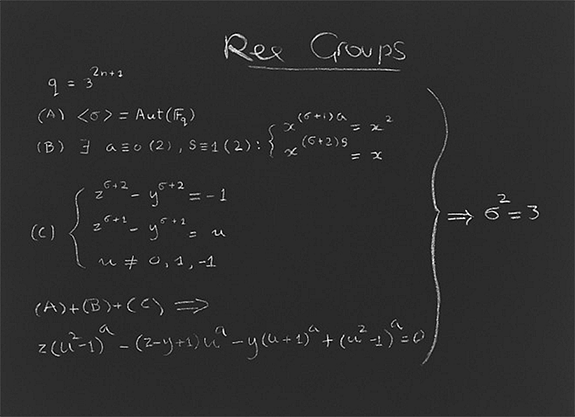 Ree Groups
q = 3^{2n+1}
(A) <σ> = Aut(F_q)
(B) ∃ a≡0(2), s≡1(2): { x^{(σ+1)a} = x^2
x^{(σ+2)s} = x
(C) { z^{σ+2} - y^{σ+2} = -1
z^{σ+1} - y^{σ+1} = u
u ≠ 0, 1, -1
} ⇒ σ^2 = 3
(A)+(B)+(C) ⇒
z(u^2-1)^a - (z-y+1)u^a - y(u+1)^a + (u^2-1)^a = 0